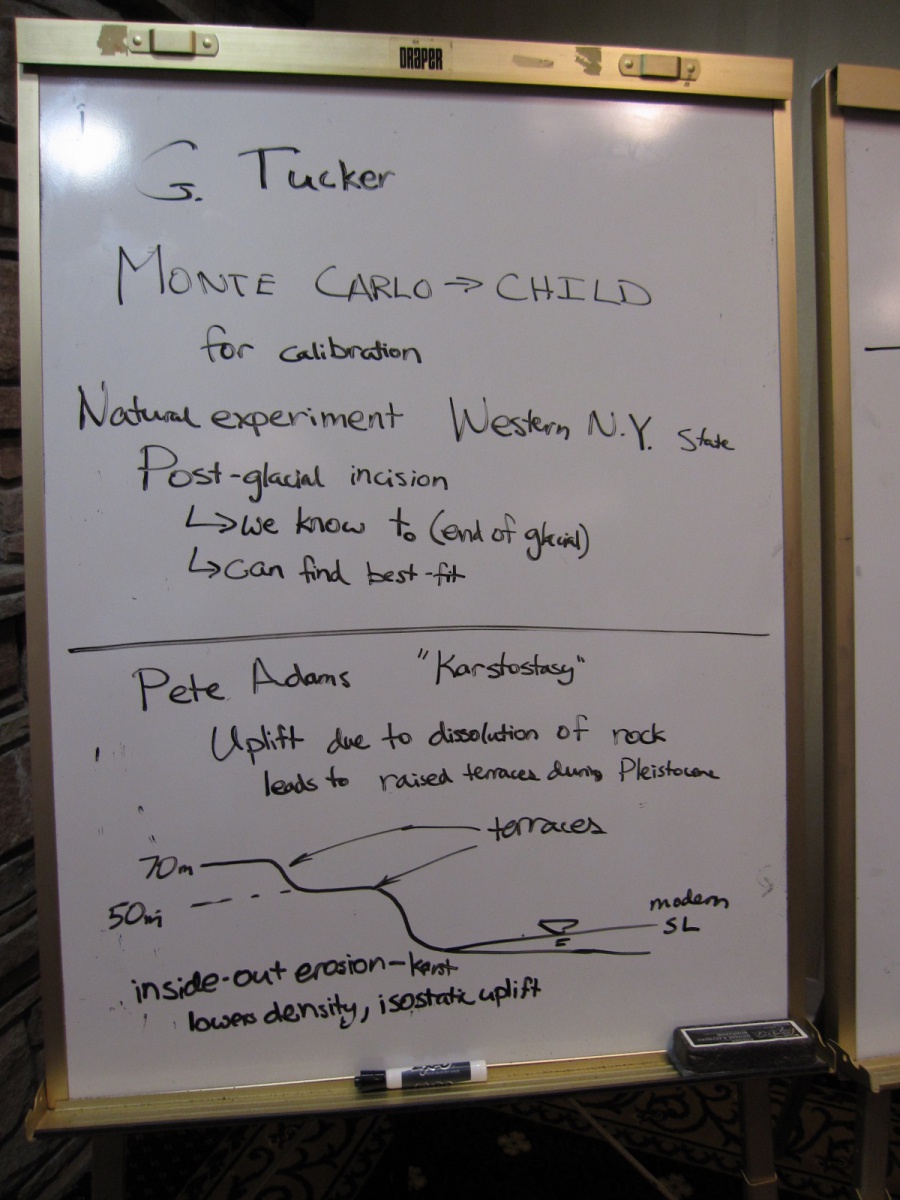 DRAPER
G. Tucker
MONTE CARLO → CHILD
for calibration
Natural experiment Western N.Y. State
Post-glacial incision
↳ we know to (end of glacial)
↳ can find best-fit
Pete Adams "Karstostasy"
Uplift due to dissolution of rock
leads to raised terraces during Pleistocene
terraces
70m
50m
modern
SL
inside-out erosion - karst
lowers density, isostatic uplift
EXPO